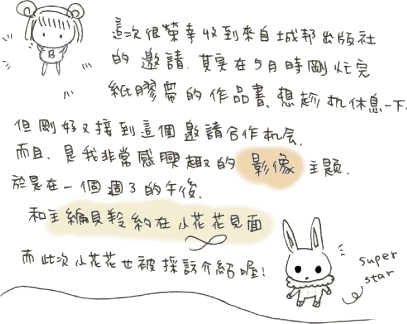 這次很榮幸收到來自城邦出版社
的邀請.其實在5月時剛忙完
紙膠帶的作品書、想趁机休息一下.
但剛好又接到這個邀請合作机会.
而且、是我非常感興趣的 影像 主題.
於是在一個週3的午後.
和主編貝羚約在小花花見面
而此次小花花也被採訪介紹喔!
super
star
B